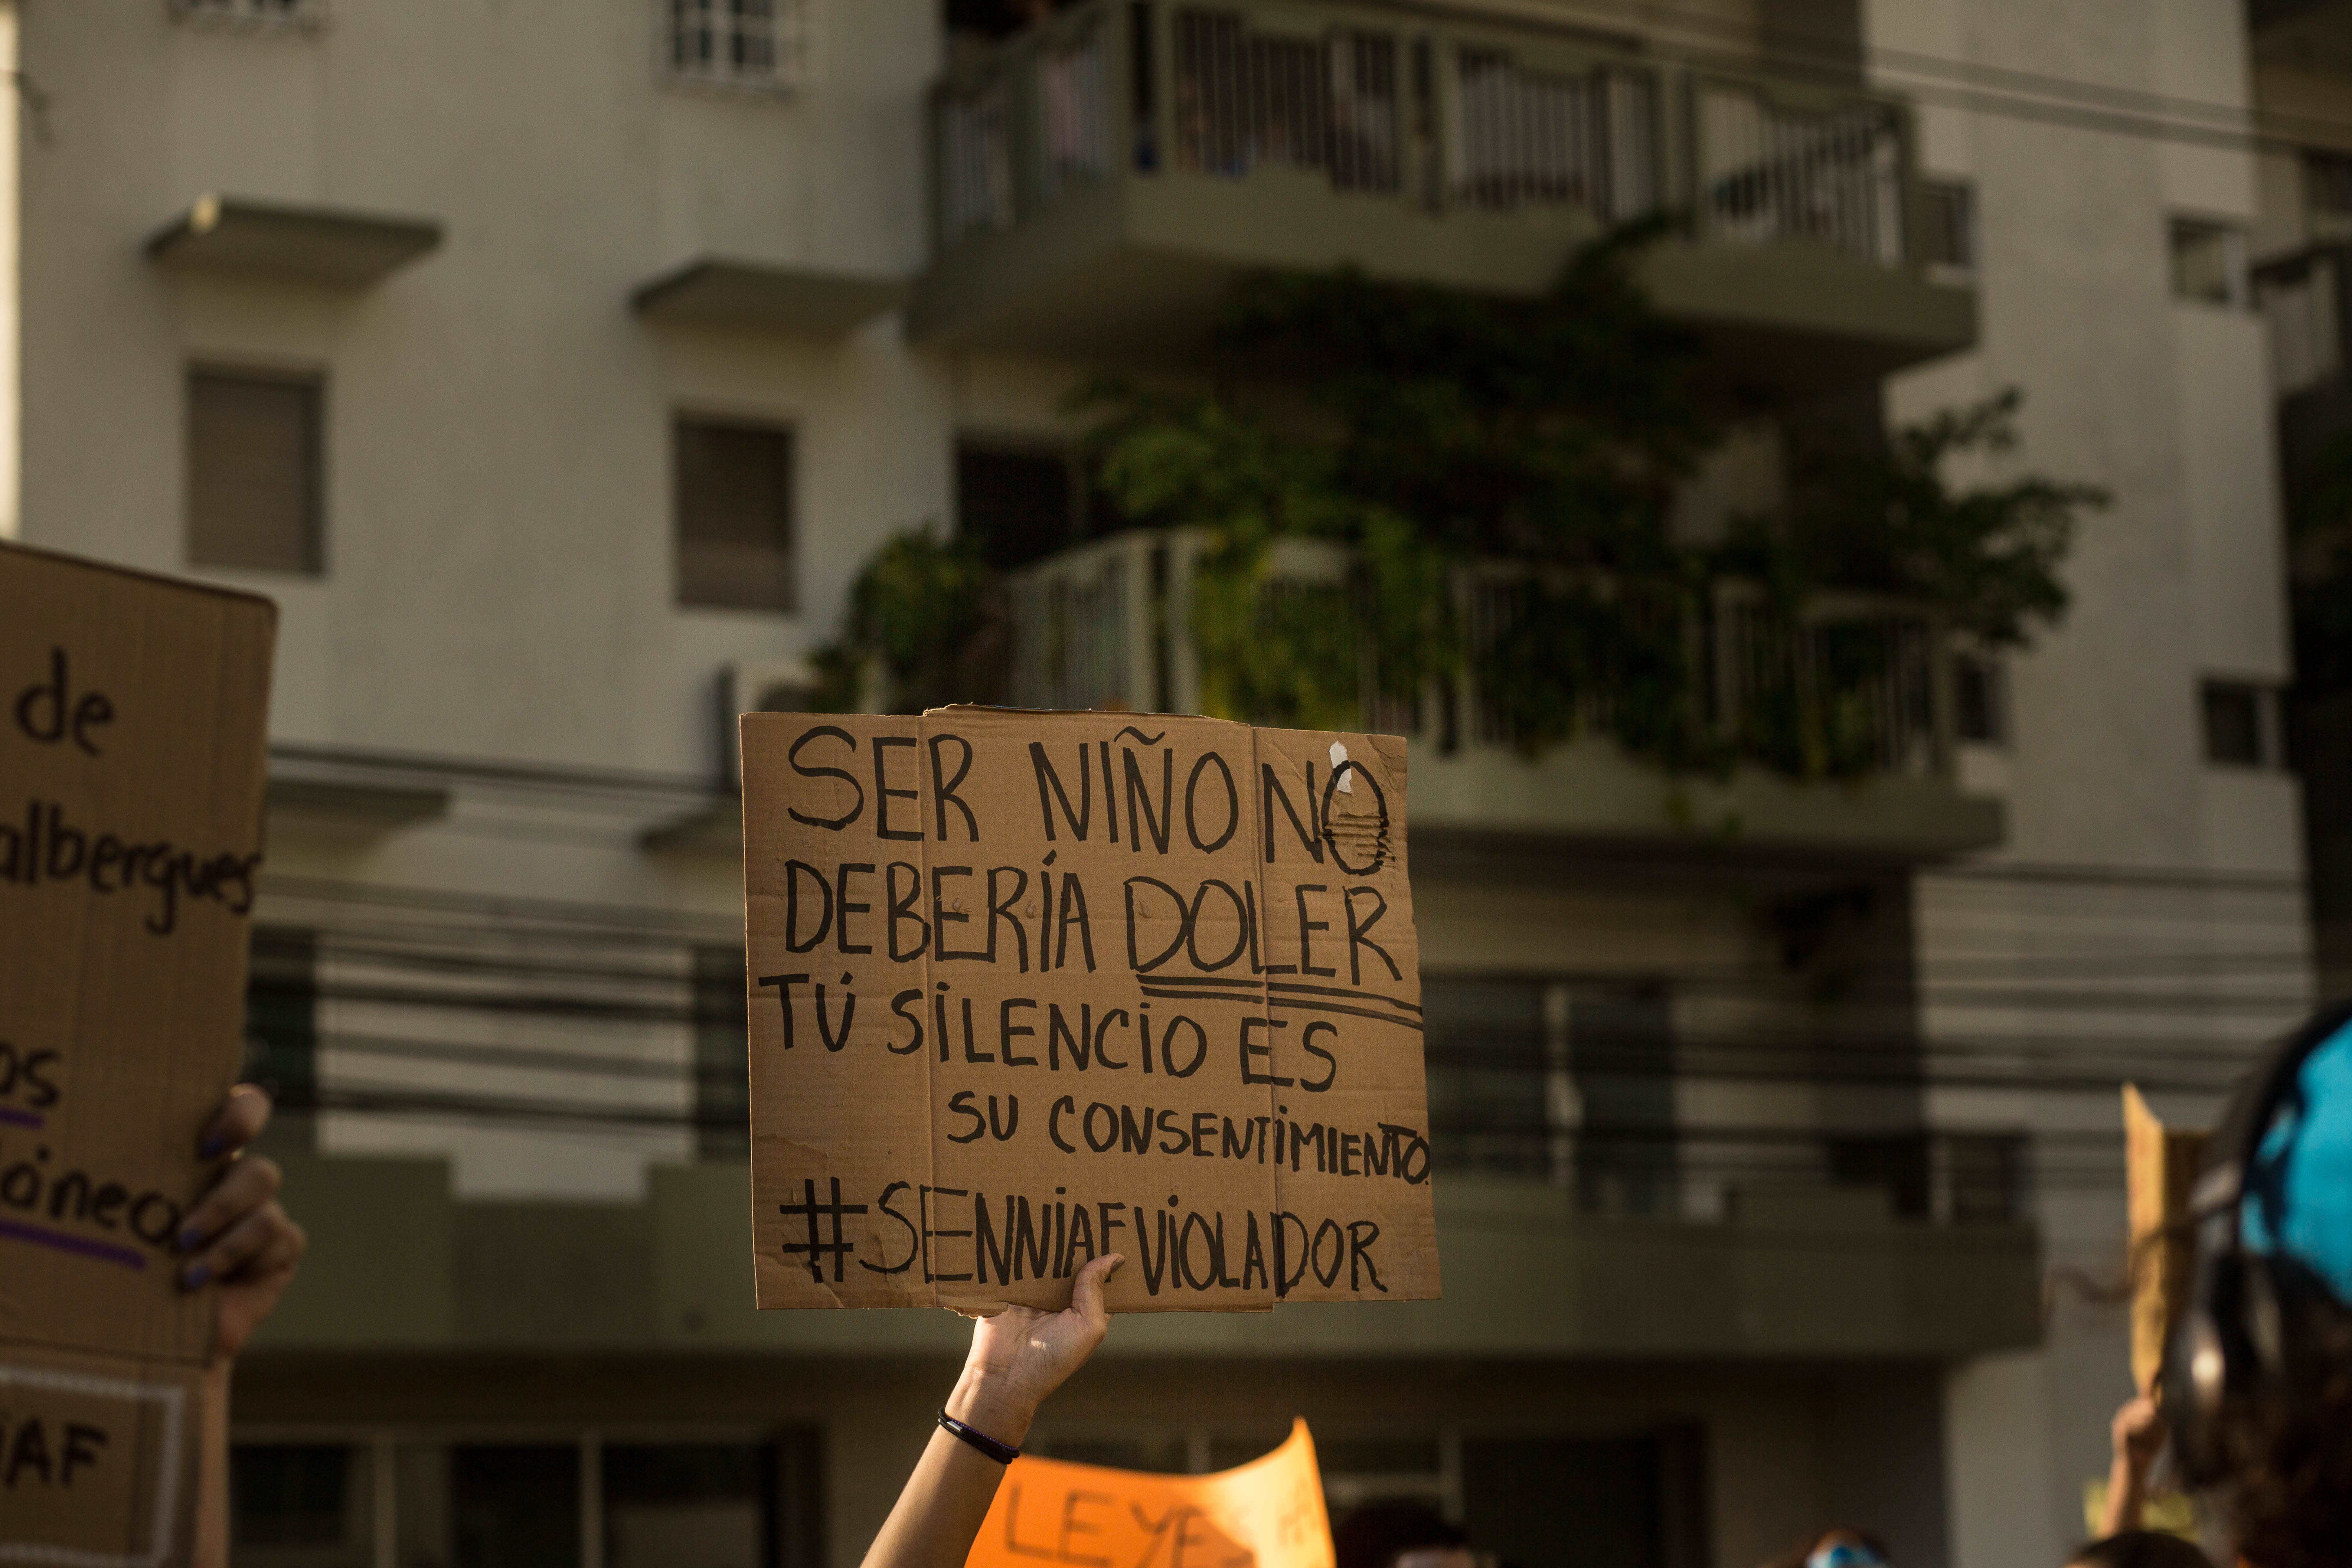 de
albergues
os
áneo
iAF
SER NIÑO NO
DEBERÍA DOLER
TÚ SILENCIO ES
SU CONSENTIMIENTO.
#SENNIAF VIOLADOR
LEYES